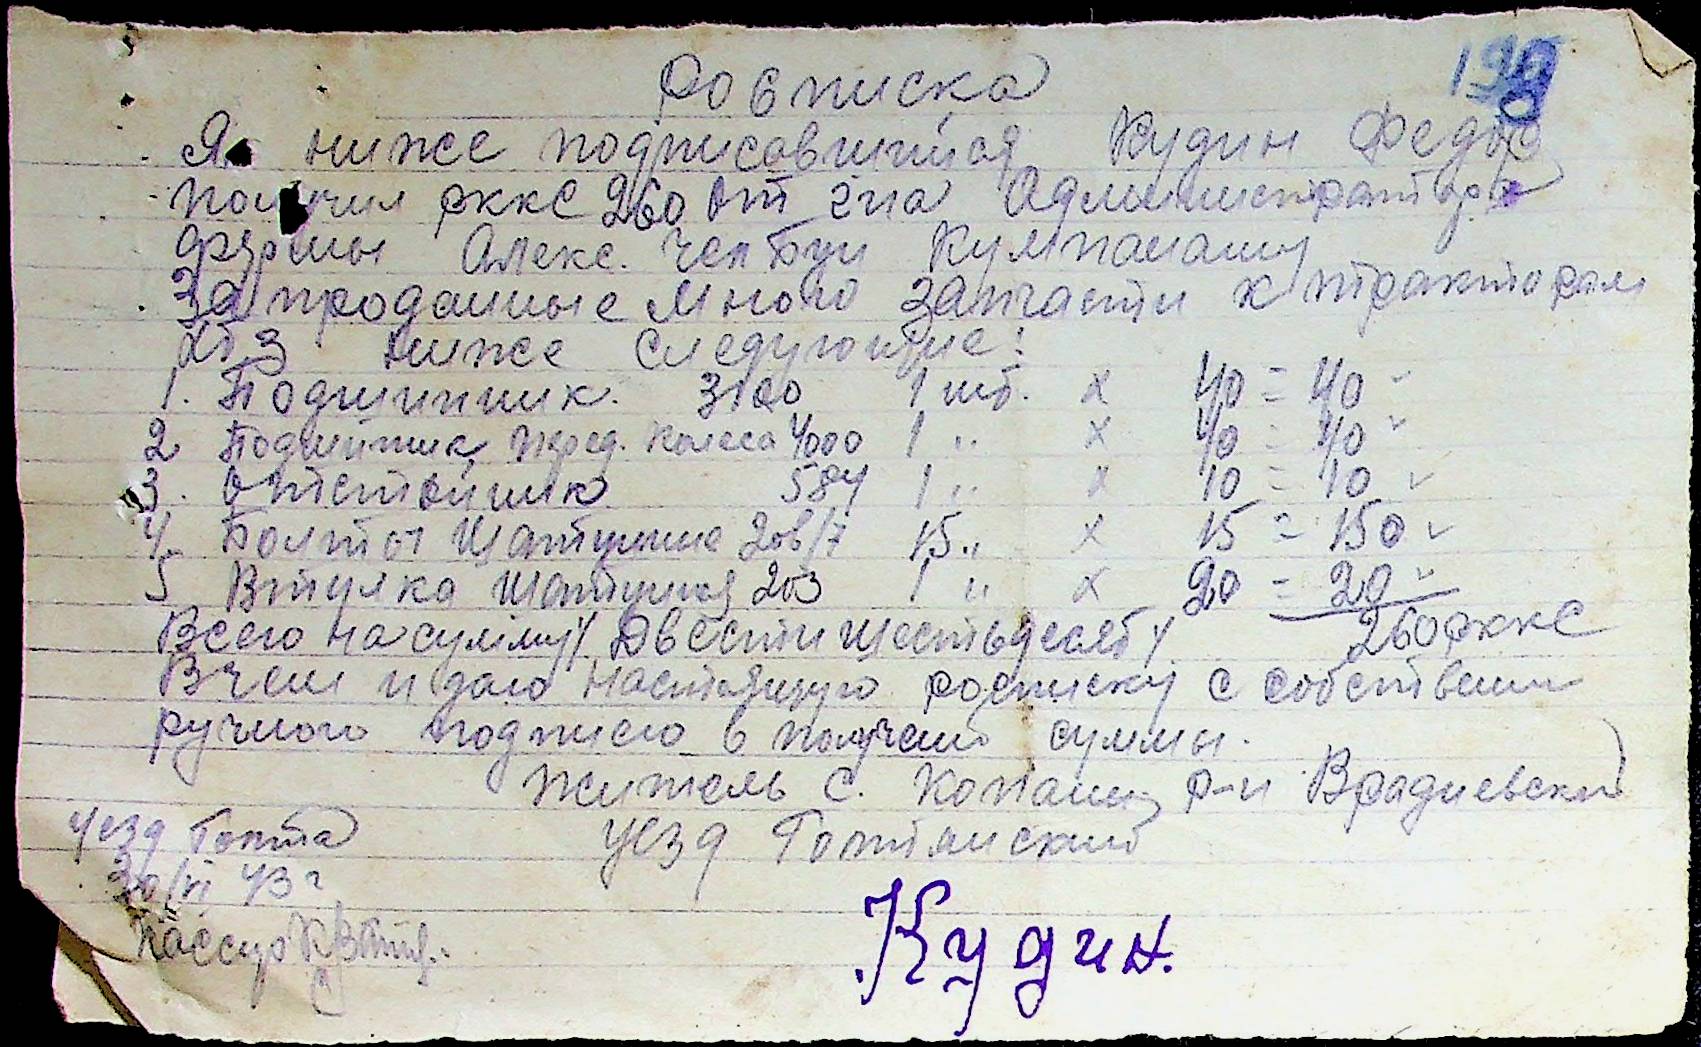 Росписка
198
Я ниже подписавшийся Кудин Федор
получил рккс 260 от г-на Администратора
фермы Алекс. Челбуи Кумпанашу
За проданные мною запчасти к тракторам
ХТЗ ниже следующие:
1. Подшипник. 3100 1 шт. х 40 = 40 "
2 Подшипник перед. колеса 4000 1 " х 40 = 40 "
3. Отстойник 584 1 " х 10 = 10 "
4. Болты Шатунные 20в/7 15 " х 15 = 150 "
5 Втулка шатуная 203 1 " х 20 = 20 "
Всего на сумму Двести шестьдесят 260 рккс
В чем и даю настоящую росписку с собствени
ручною подписю в получении суммы.
Житель с. Копани р-н Врадиевский
уезд Голта уезд Голтянский
30/VI 43 г
Кассир
Кудин.